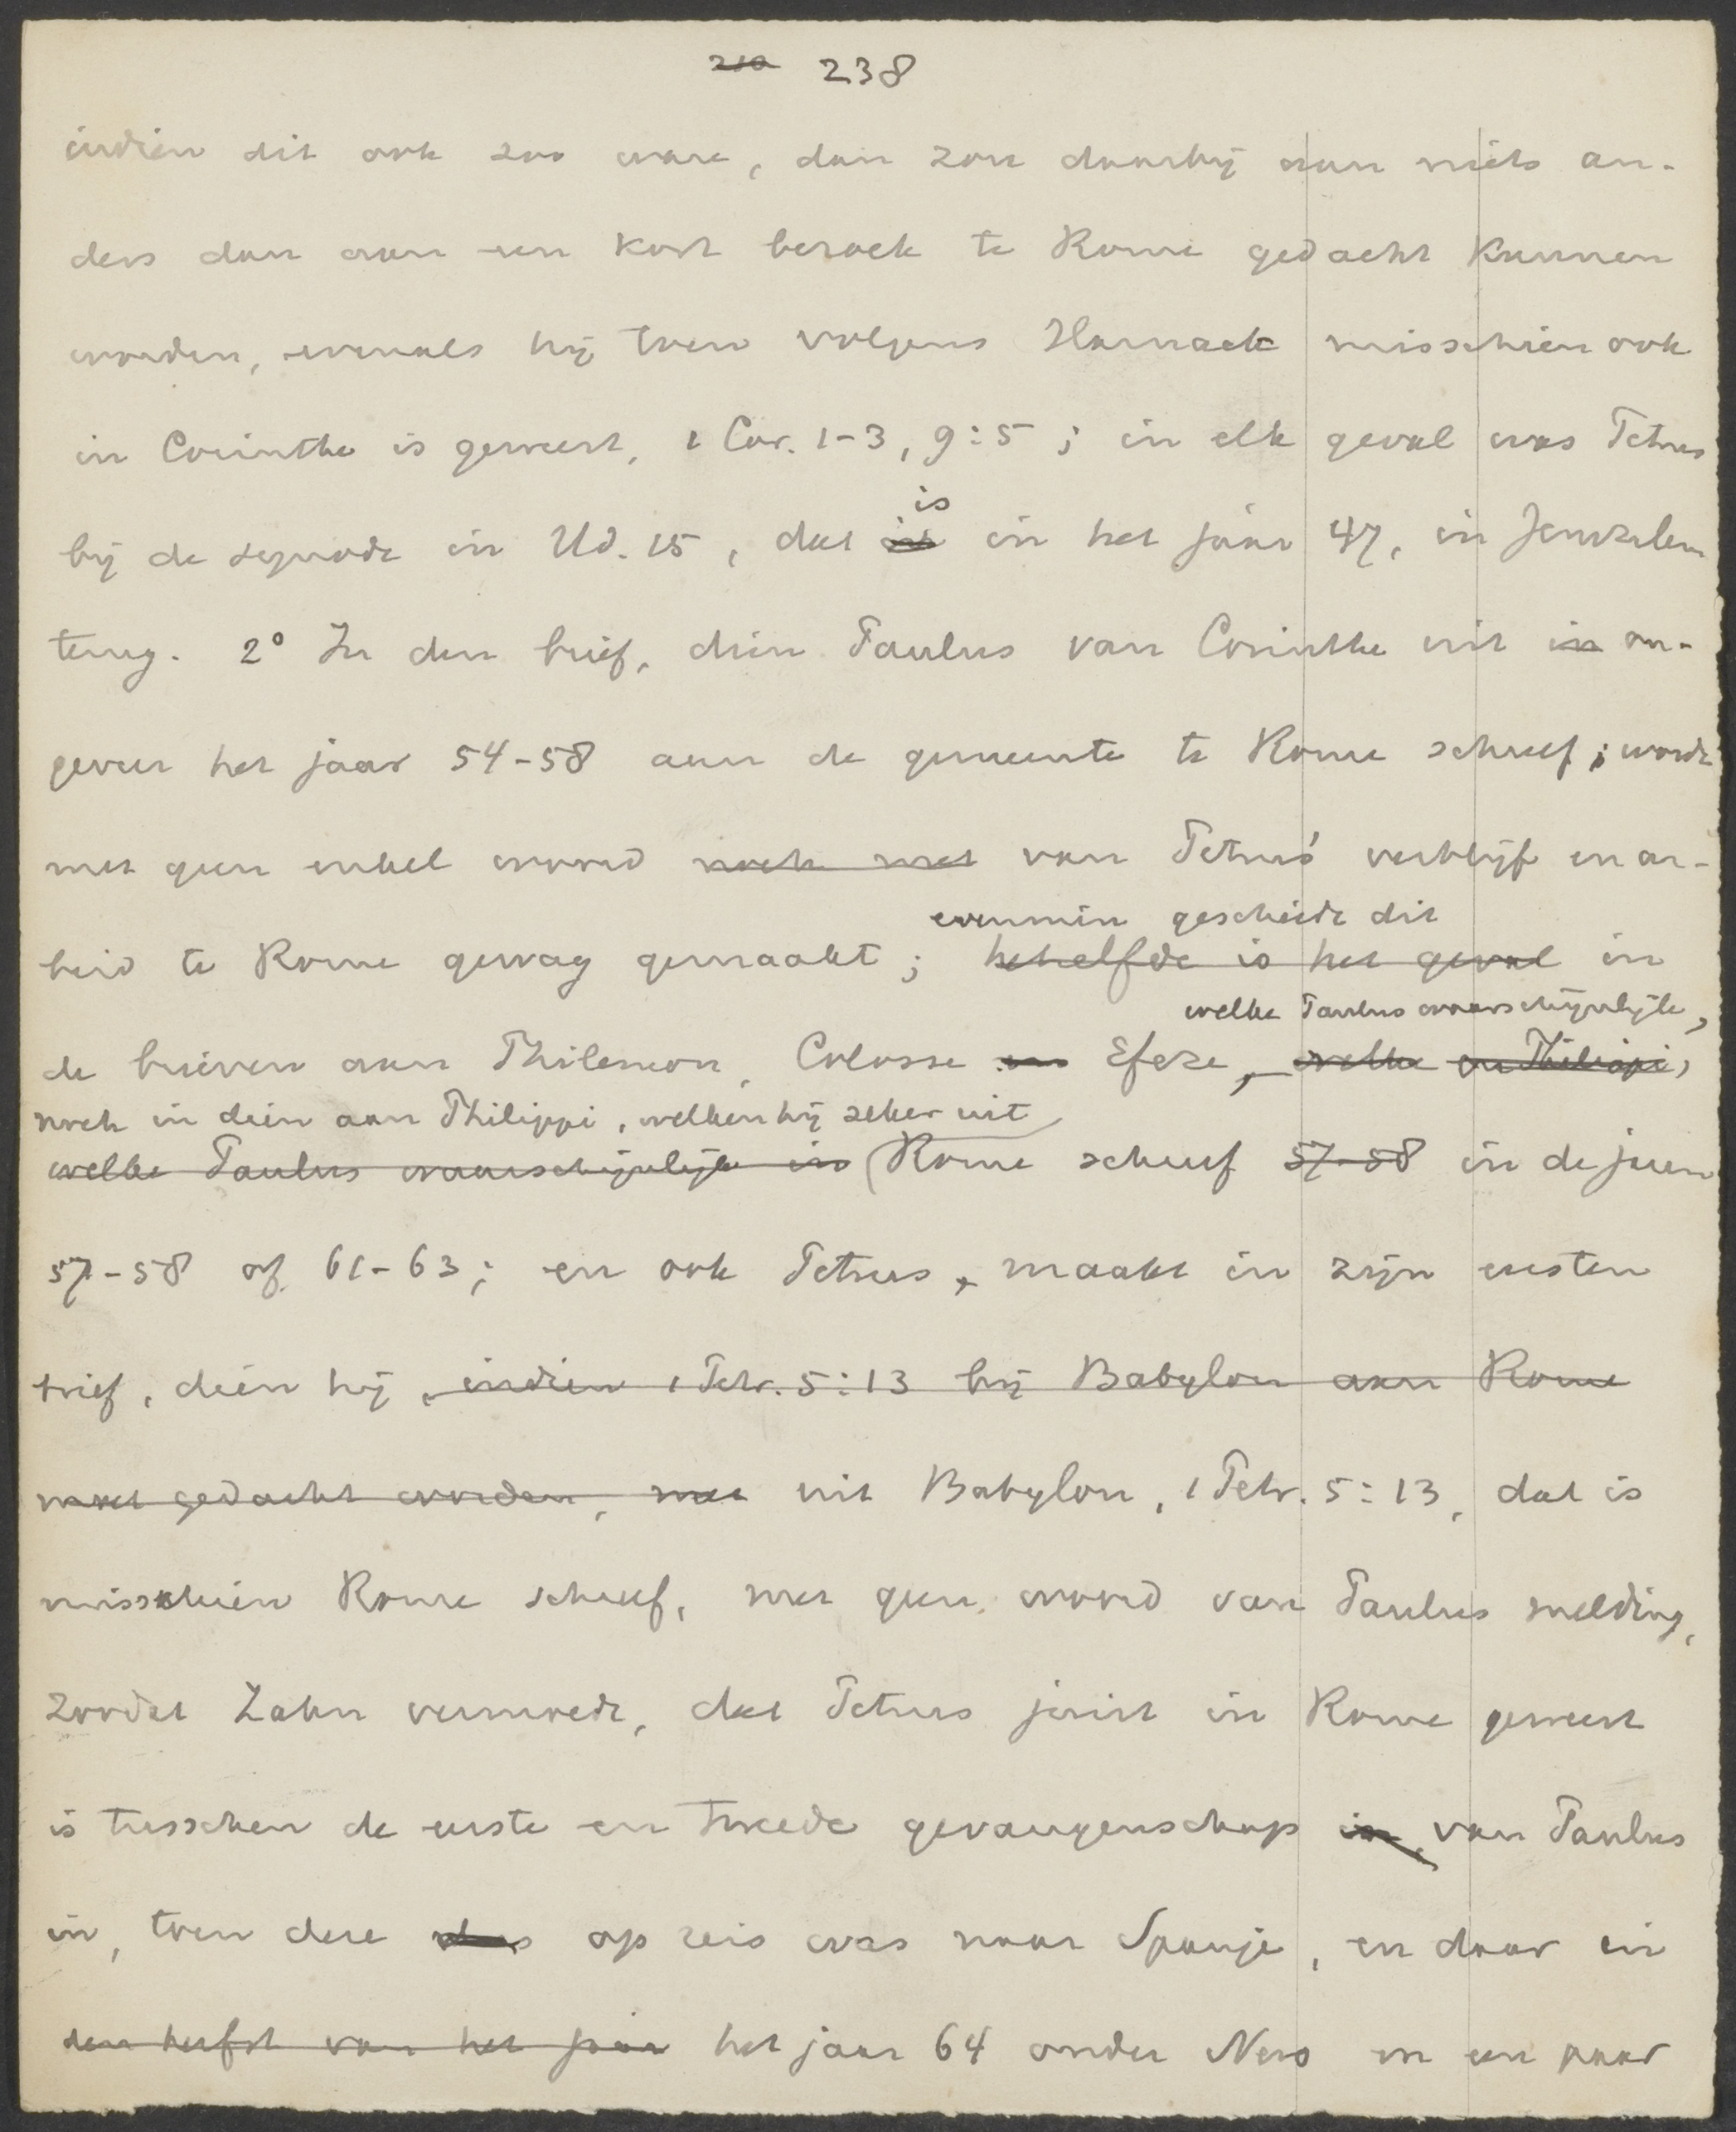 210 238
indien dit ook zoo ware, dan zou daarbij aan niets an-
ders dan aan een kort bezoek te Rome gedacht kunnen
worden, evenals hij toen volgens Harnack misschien ook
in Corinthe is geweest, 1 Cor. 1-3, 9:5; in elk geval was Petrus
is
bij de synode in Hd. 15, dat in het jaar 47, in Jeruzalem
terug. 2° In den brief, dien Paulus van Corinthe uit in on-
geveer het jaar 54-58 aan de gemeente te Rome schreef; wordt
met geen enkel woord noch met van Petrus' verblijf en ar-
evenmin geschiedt dit
beid te Rome gewag gemaakt; hetzelfde is het geval in
welke Paulus waarschijnlijk,
de brieven aan Philemon, Colosse en Efeze, welke en Philippi,
noch in dien aan Philippi, welken hij zeker uit
welke Paulus waarschijnlijk in Rome schreef 57-58 in de jaren
57-58 of 61-63; en ook Petrus, maakt in zijn eersten
brief, dien hij, indien 1 Petr. 5:13 bij Babylon aan Rome
moet gedacht worden, met uit Babylon, 1 Petr. 5:13, dat is
misschien Rome schreef, met geen woord van Paulus melding,
zoodat Zahn vermoedt, dat Petrus juist in Rome geweest
is tusschen de eerste en tweede gevangenschap in, van Paulus
in, toen deze op reis was naar Spanje, en daar in
den herfst van het jaar het jaar 64 onder Nero in een paar